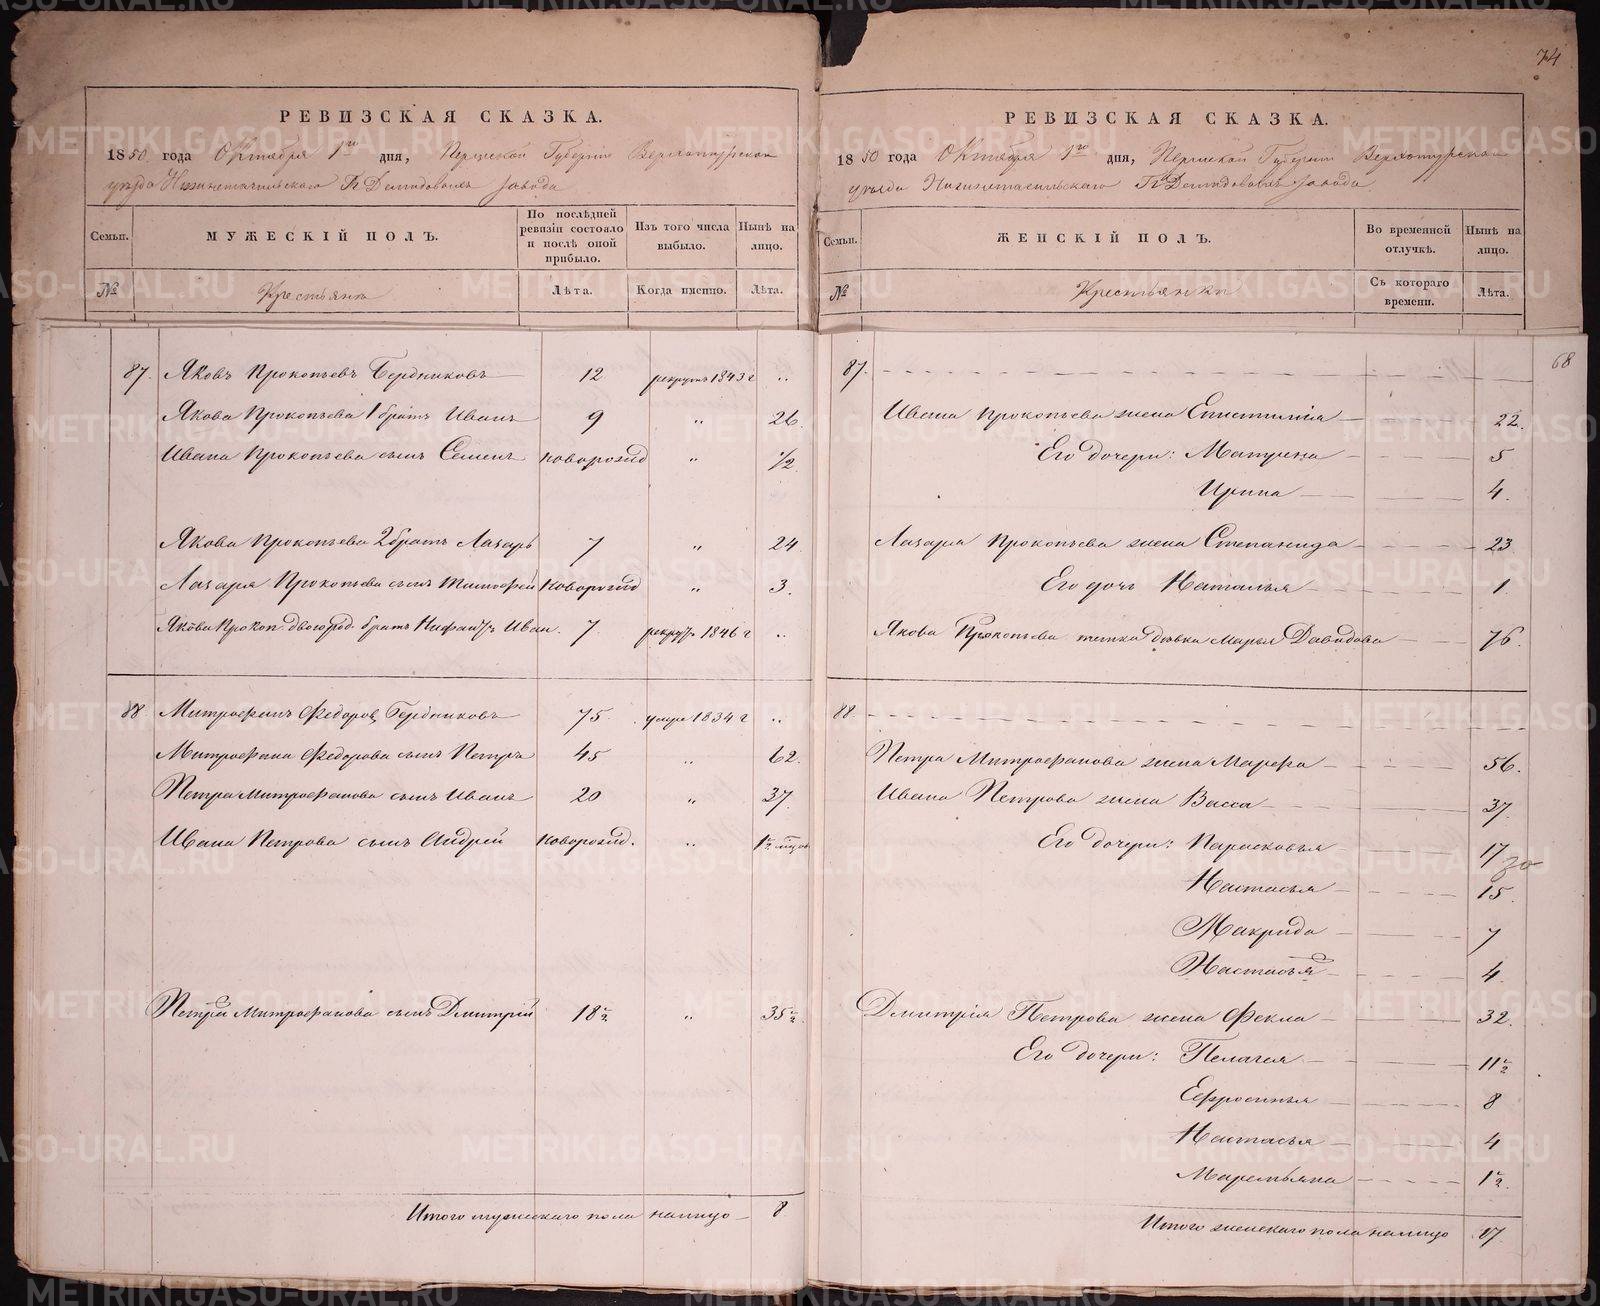 74
РЕВИЗСКАЯ СКАЗКА.
1850 года Октября 1го дня, Пермской Губернiи Верхотурскаго
уезда Нижнетагильскаго Гг Демидовыхъ завода
Семьи.
МУЖЕСКIЙ ПОЛЪ.
По послѣдней ревизiи состояло и послѣ оной прибыло.
Изъ того числа выбыло.
Нынѣ на лицо.
№
Крестьяне
Лѣта.
Когда именно.
Лѣта.
87. Яковъ Прокопьевъ Бердниковъ 12 рекрутъ 1843 г "
Якова Прокопьева 1 братъ Иванъ 9 " 26.
Ивана Прокопьева сынъ Семенъ новорожд " 1/2
Якова Прокопьева 2 братъ Лазарь 7 " 24
Лазаря Прокопьева сынъ Тимофей новорожд " 3.
Якова Прокоп. двоюрод. братъ Иван. 7. рекрут 1846 г "
88 Митрофанъ Федоровъ Бердниковъ 75. умре 1834 г "
Митрофана Федорова сынъ Петръ 45 " 62.
Петра Митрофанова сынъ Иванъ 20 " 37.
Ивана Петрова сынъ Андрей новорожд. "
Петра Митрофанова сынъ Дмитрiй 18 1/2 " 35 1/2
Итого мужескаго пола налицо 8
РЕВИЗСКАЯ СКАЗКА.
1850 года Октября 1го дня, Пермской Губернiи Верхотурскаго
уезда Нижнетагильскаго Гг Демидовыхъ завода.
Семьи.
ЖЕНСКIЙ ПОЛЪ.
Во временной отлучкѣ.
Нынѣ на лицо.
№
Крестьянки
Съ котораго времени.
Лѣта.
68
87.
Ивана Прокопьева жена Епистимiя 22.
Его дочери: Матрена 5
Ирина 4.
Лазаря Прокопьева жена Степанида 23.
Его дочь Наталья 1
Якова Прокопьева тетка девка Марья Давидова 76.
88.
Петра Митрофанова жена Марфа 56.
Ивана Петрова жена Васса 37.
Его дочери: Парасковья 17
Настасья 15.
Макрида 7
Настасья 4.
Дмитрiя Петрова жена Фекла 32.
Его дочери: Пелагея 11 1/2
Ефросинья 8
Настасья 4
Маремьяна 1 1/2.
Итого женскаго пола налицо 17.
METRIKI.GASO-URAL.RU